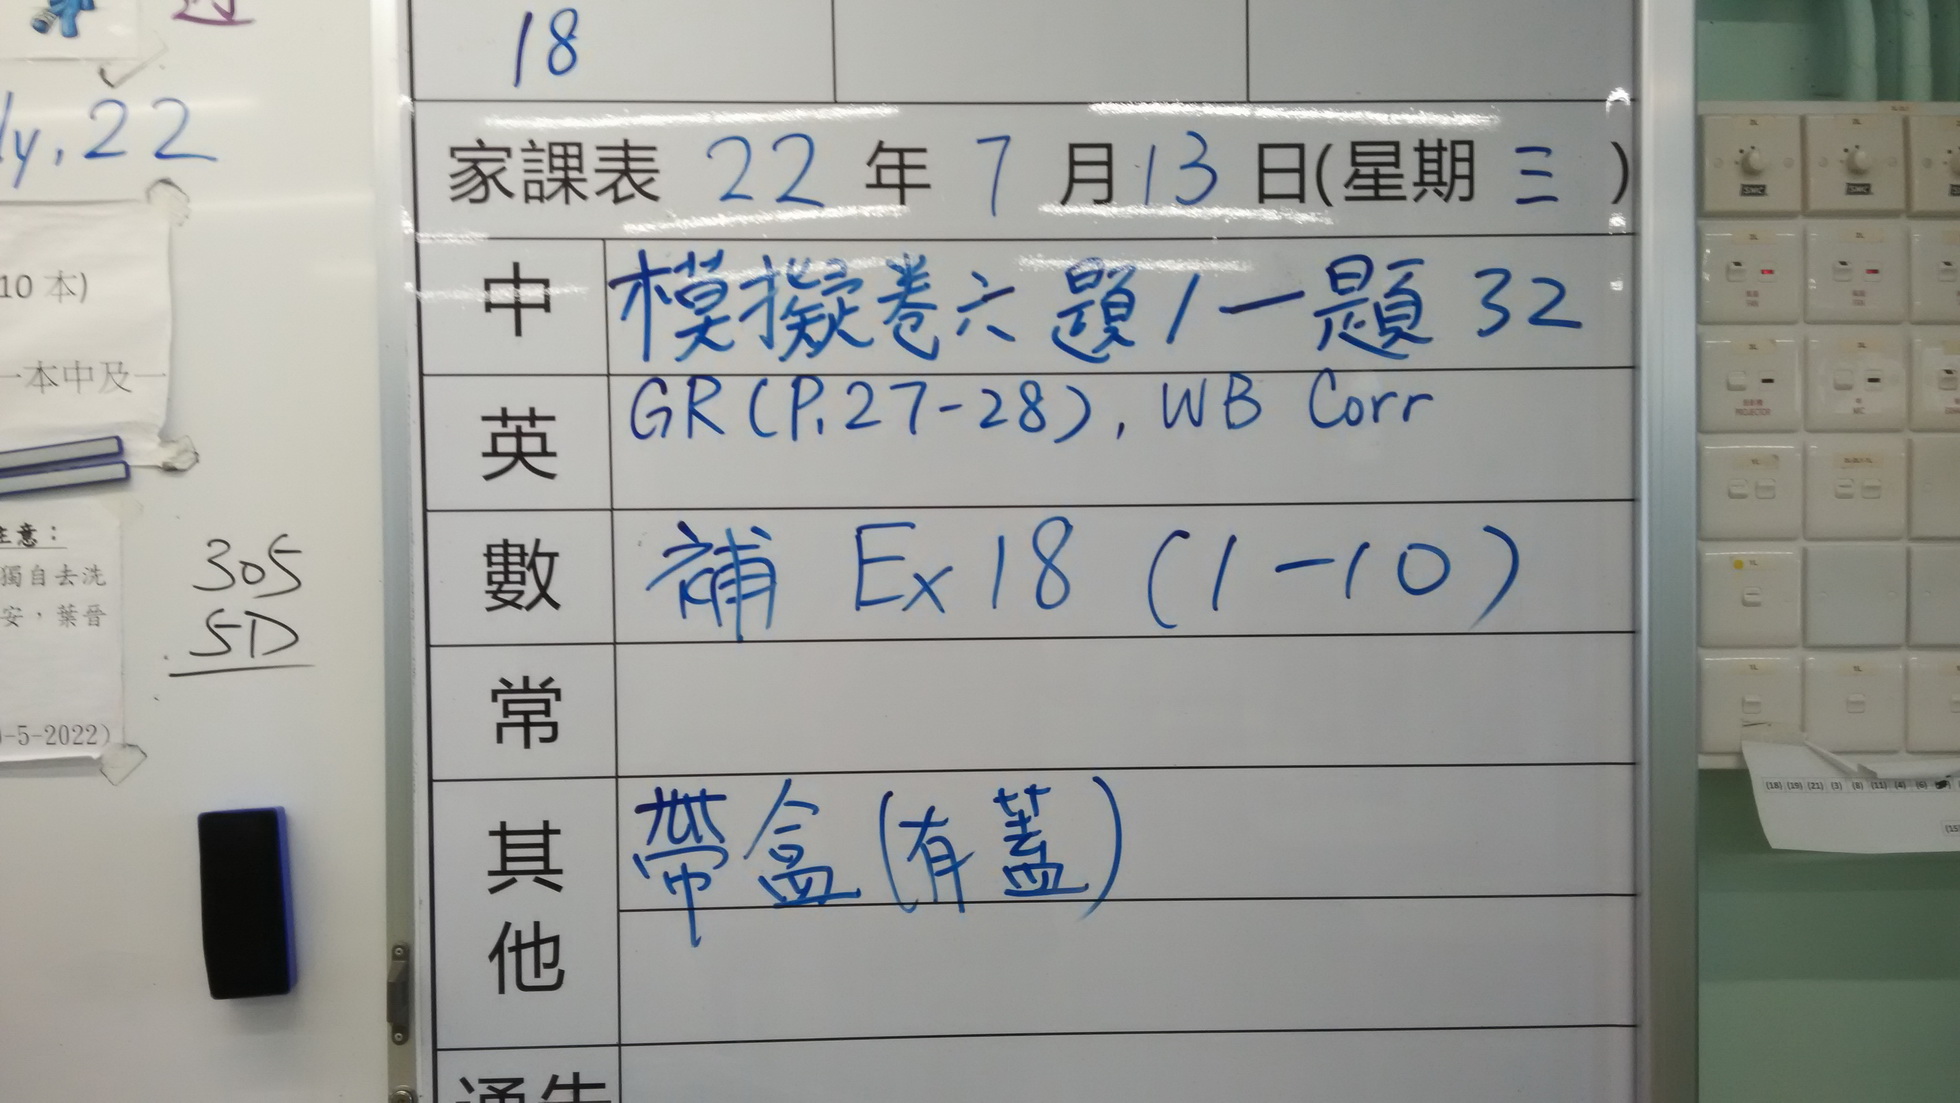 18
ly, 22
家課表 22 年 7 月 13 日(星期 三 )
10 本)
一本中及一
中 模擬卷六題1一題32
英 GR (P.27-28), WB Corr
數 補 Ex 18 (1-10)
常
其他 帶盒(有蓋)
通告
注意：
獨自去洗
安，葉晉
-5-2022)
305
5D
PROJECTOR
MIC
(18) (19) (21) (3) (8) (11) (4) (6)